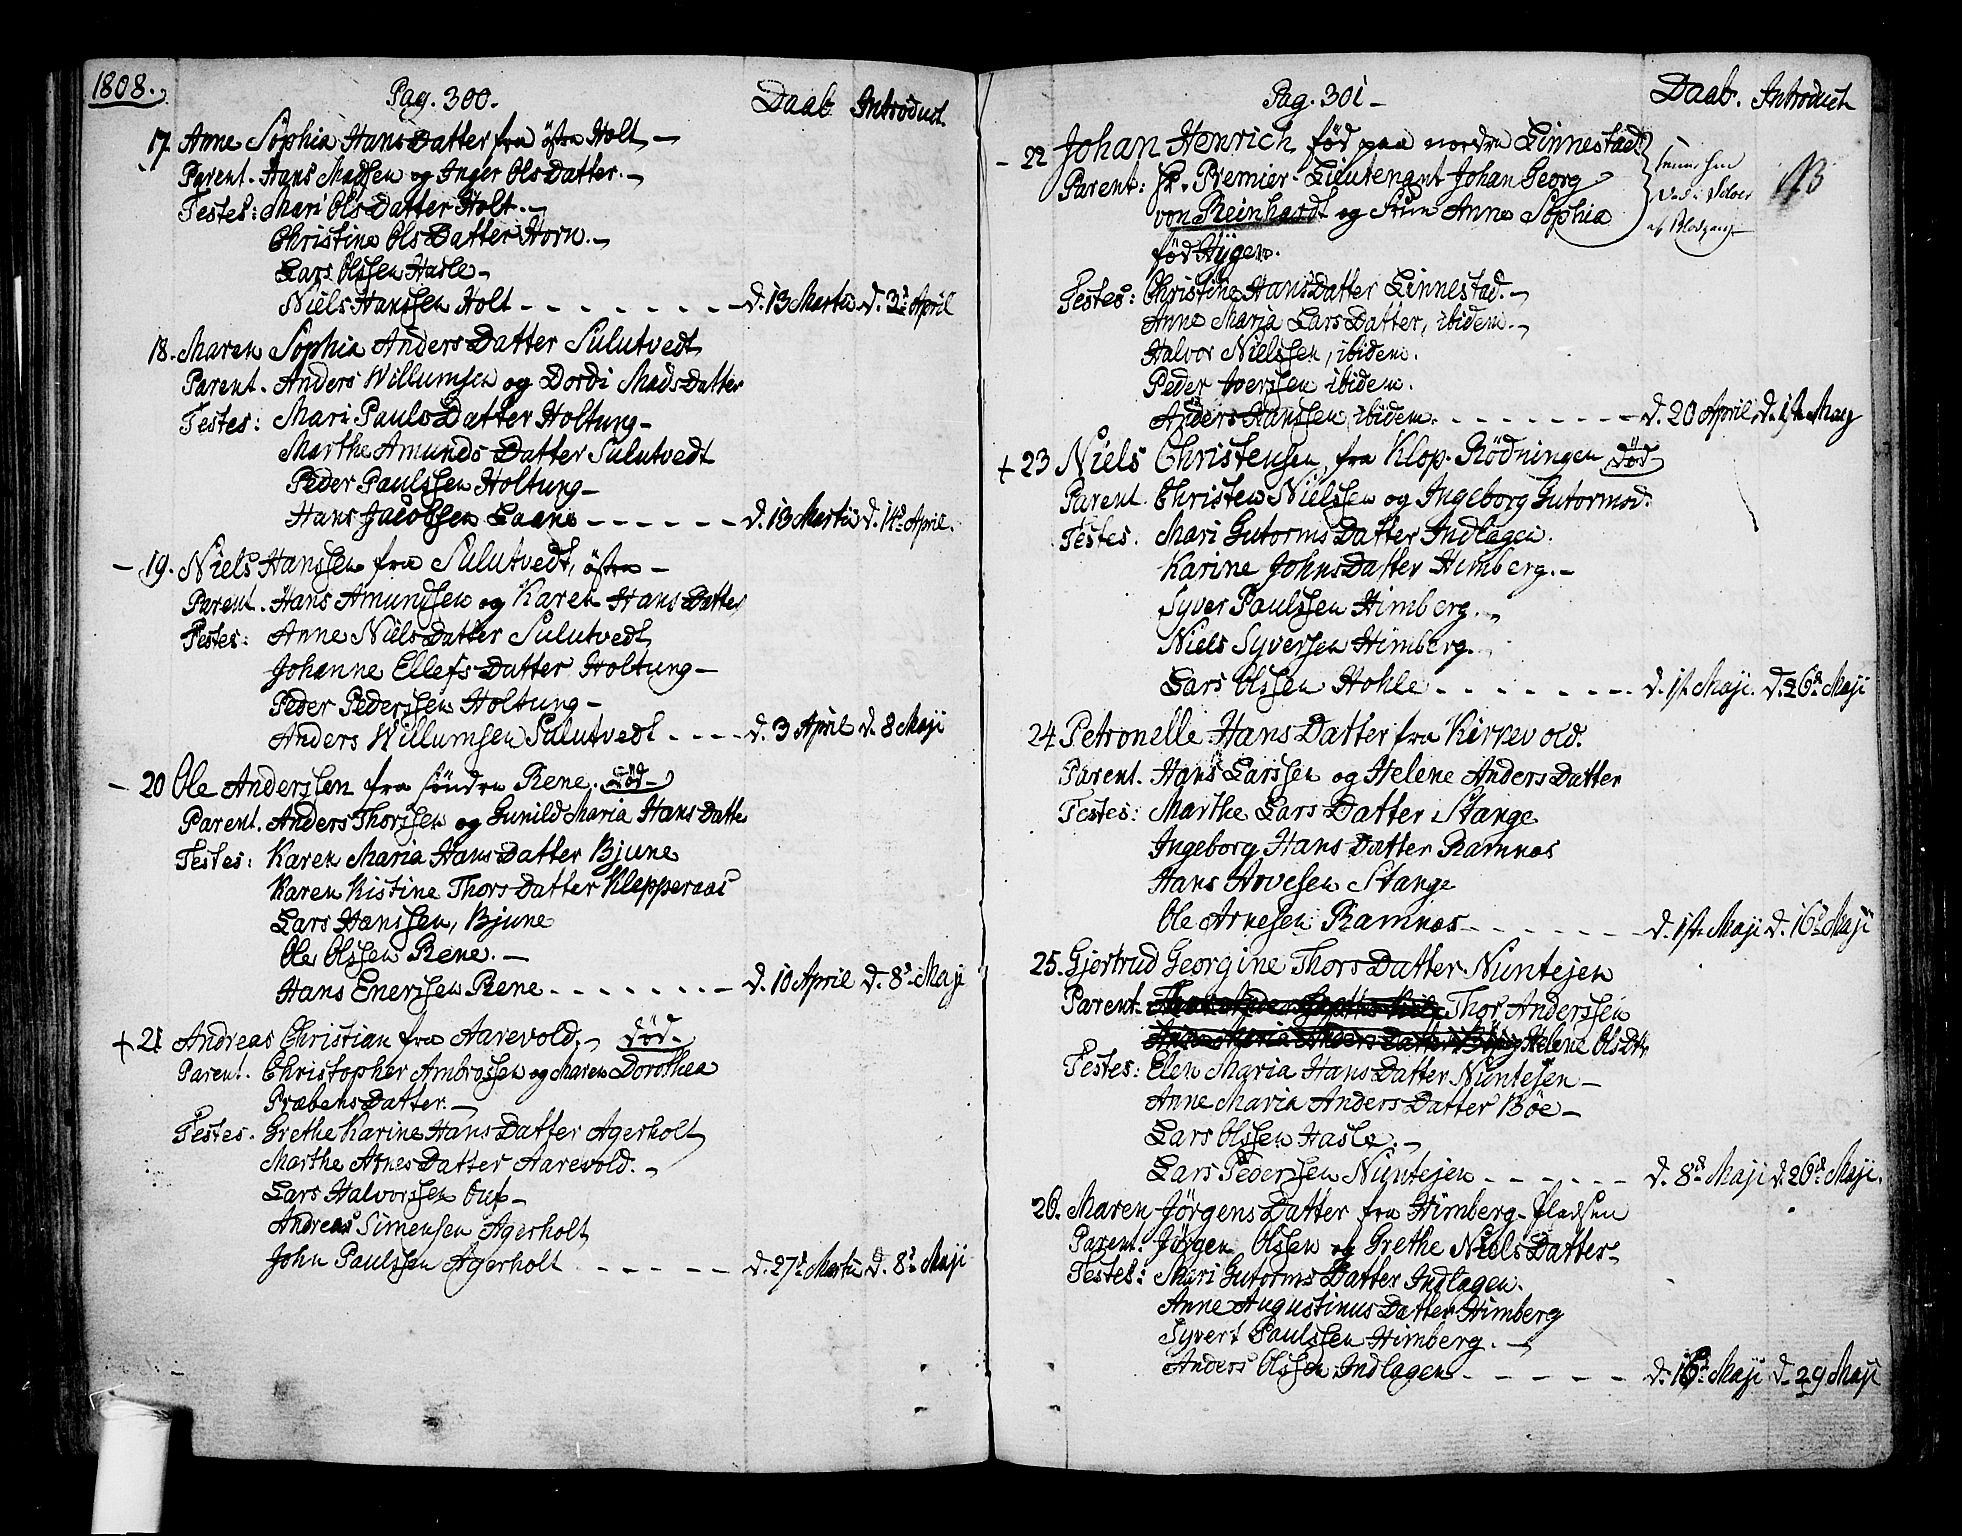 1808.
Pag. 300.
Daab Introduct.
17 Anne Sophia HansDatter fra östre Holt
Parent. Hans Madssen og Inger OlsDatter.
Testes: Mari OlsDatter Holt.
Christine OlsDatter Horn.
Lars Olssen Hasle
Niels Hanssen Holt - - - - - - d. 13 Martii d. 3d April
18. Maren Sophia AndersDatter Sulutvedt
Parent. Anders Willumsen og Dordi MadsDatter
Testes: Mari PaulsDatter Holtung
Marthe AmundsDatter Sulutvedt
Peder Paulssen Holtung
Hans Jacobssen Laane - - - - - - d. 13 Martii d. 14d April.
- 19. Niels Hanssen fra Sulutvedt, östre
Parent. Hans Amundssen og Karen HansDatter
Testes: Anne NielsDatter Sulutvedt
Johanne EllefsDatter Holtung
Peder Pederssen Holtung
Anders Willumsen Sulutvedt - - - - d. 3 April d. 8 Maji
- 20 Ole Anderssen fra söndre Rene. död
Parent. Anders Thorssen og Gunild Maria HansDatte
Testes: Karen Maria HansDatter Bjune
Karen Kistine ThorsDatter Klepperaas
Lars Hanssen, Bjune
Ole Olssen Rene.
Hans Enerssen Rene - - - - - - - d. 10 April d. 8d Maji
+ 21 Andreas Christian fra Aarevold. död.
Parent. Christopher Ambrossen og Maren Dorothea
PræbensDatter.
Testes. Grethe Karine HansDatter Agerholt
Marthe ArnesDatter Aarevold.
Lars Halvorssen Ouf
Andreas Simensen Agerholt
John Paulssen Agerholt - - - - - d. 27d Martii d. 8d Maji
Pag. 301
Daab. Introduct
- 22 Johan Henrich, föd paa nordre Linnestad
Parent: Hr. Premier-Lieutenant Johan Georg
von Reinhardt og Frue Anne Sophia
föd Hygen.
af Blodgang
Testes: Christine HansDatter Linnestad.
Anne Maria LarsDatter, ibidem.
Halvor Nielssen, ibidem.
Peder Iverssen ibidem.
Anders Hanssen, ibidem. - - - - - - - d. 20 April d. 1ste May
+ 23 Niels Christensen, fra Klop-Rödningen död
Parent. Christen Nielssen og Ingeborg Gutormsd.
Testes. Mari GutormsDatter Indlagen.
Karine JohnsDatter Himberg.
Syver Paulssen Himberg.
Niels Syversen Himberg.
Lars Olssen Hohle - - - - - - - d. 1st Maji. d. 26d Maji
24. Petronelle HansDatter fra Kirkevold.
Parent. Hans Larssen og Helene AndersDatter
Testes: Marthe LarsDatter Stange
Ingeborg HansDatter Ramnæs
Hans Arvesen Stange
Ole Arnesen Ramnæs - - - - - - d. 1ste Maji d. 16d Maji
25. Gjertrud Georgine ThorsDatter Nuntejen
Parent. Thor Anderssen
Helene OlsDtr
Testes: Elen Maria HansDatter Nuntejen
Anne Maria AndersDatter Böe
Lars Olssen Hasle.
Lars Pederssen Nuntejen - - - - - - d. 8d Maji d. 26d Maji.
26. Maren JörgensDatter fra Himberg-Pladsen
Parent: Jörgen Olssen og Grethe NielsDatter
Testes: Mari GutormsDatter Indlagen.
Anne AugustinusDatter Himberg
Syvert Paulssen Himberg.
Anders Olssen Indlagen - - - - - - d. 16d Maji d. 29 Maji